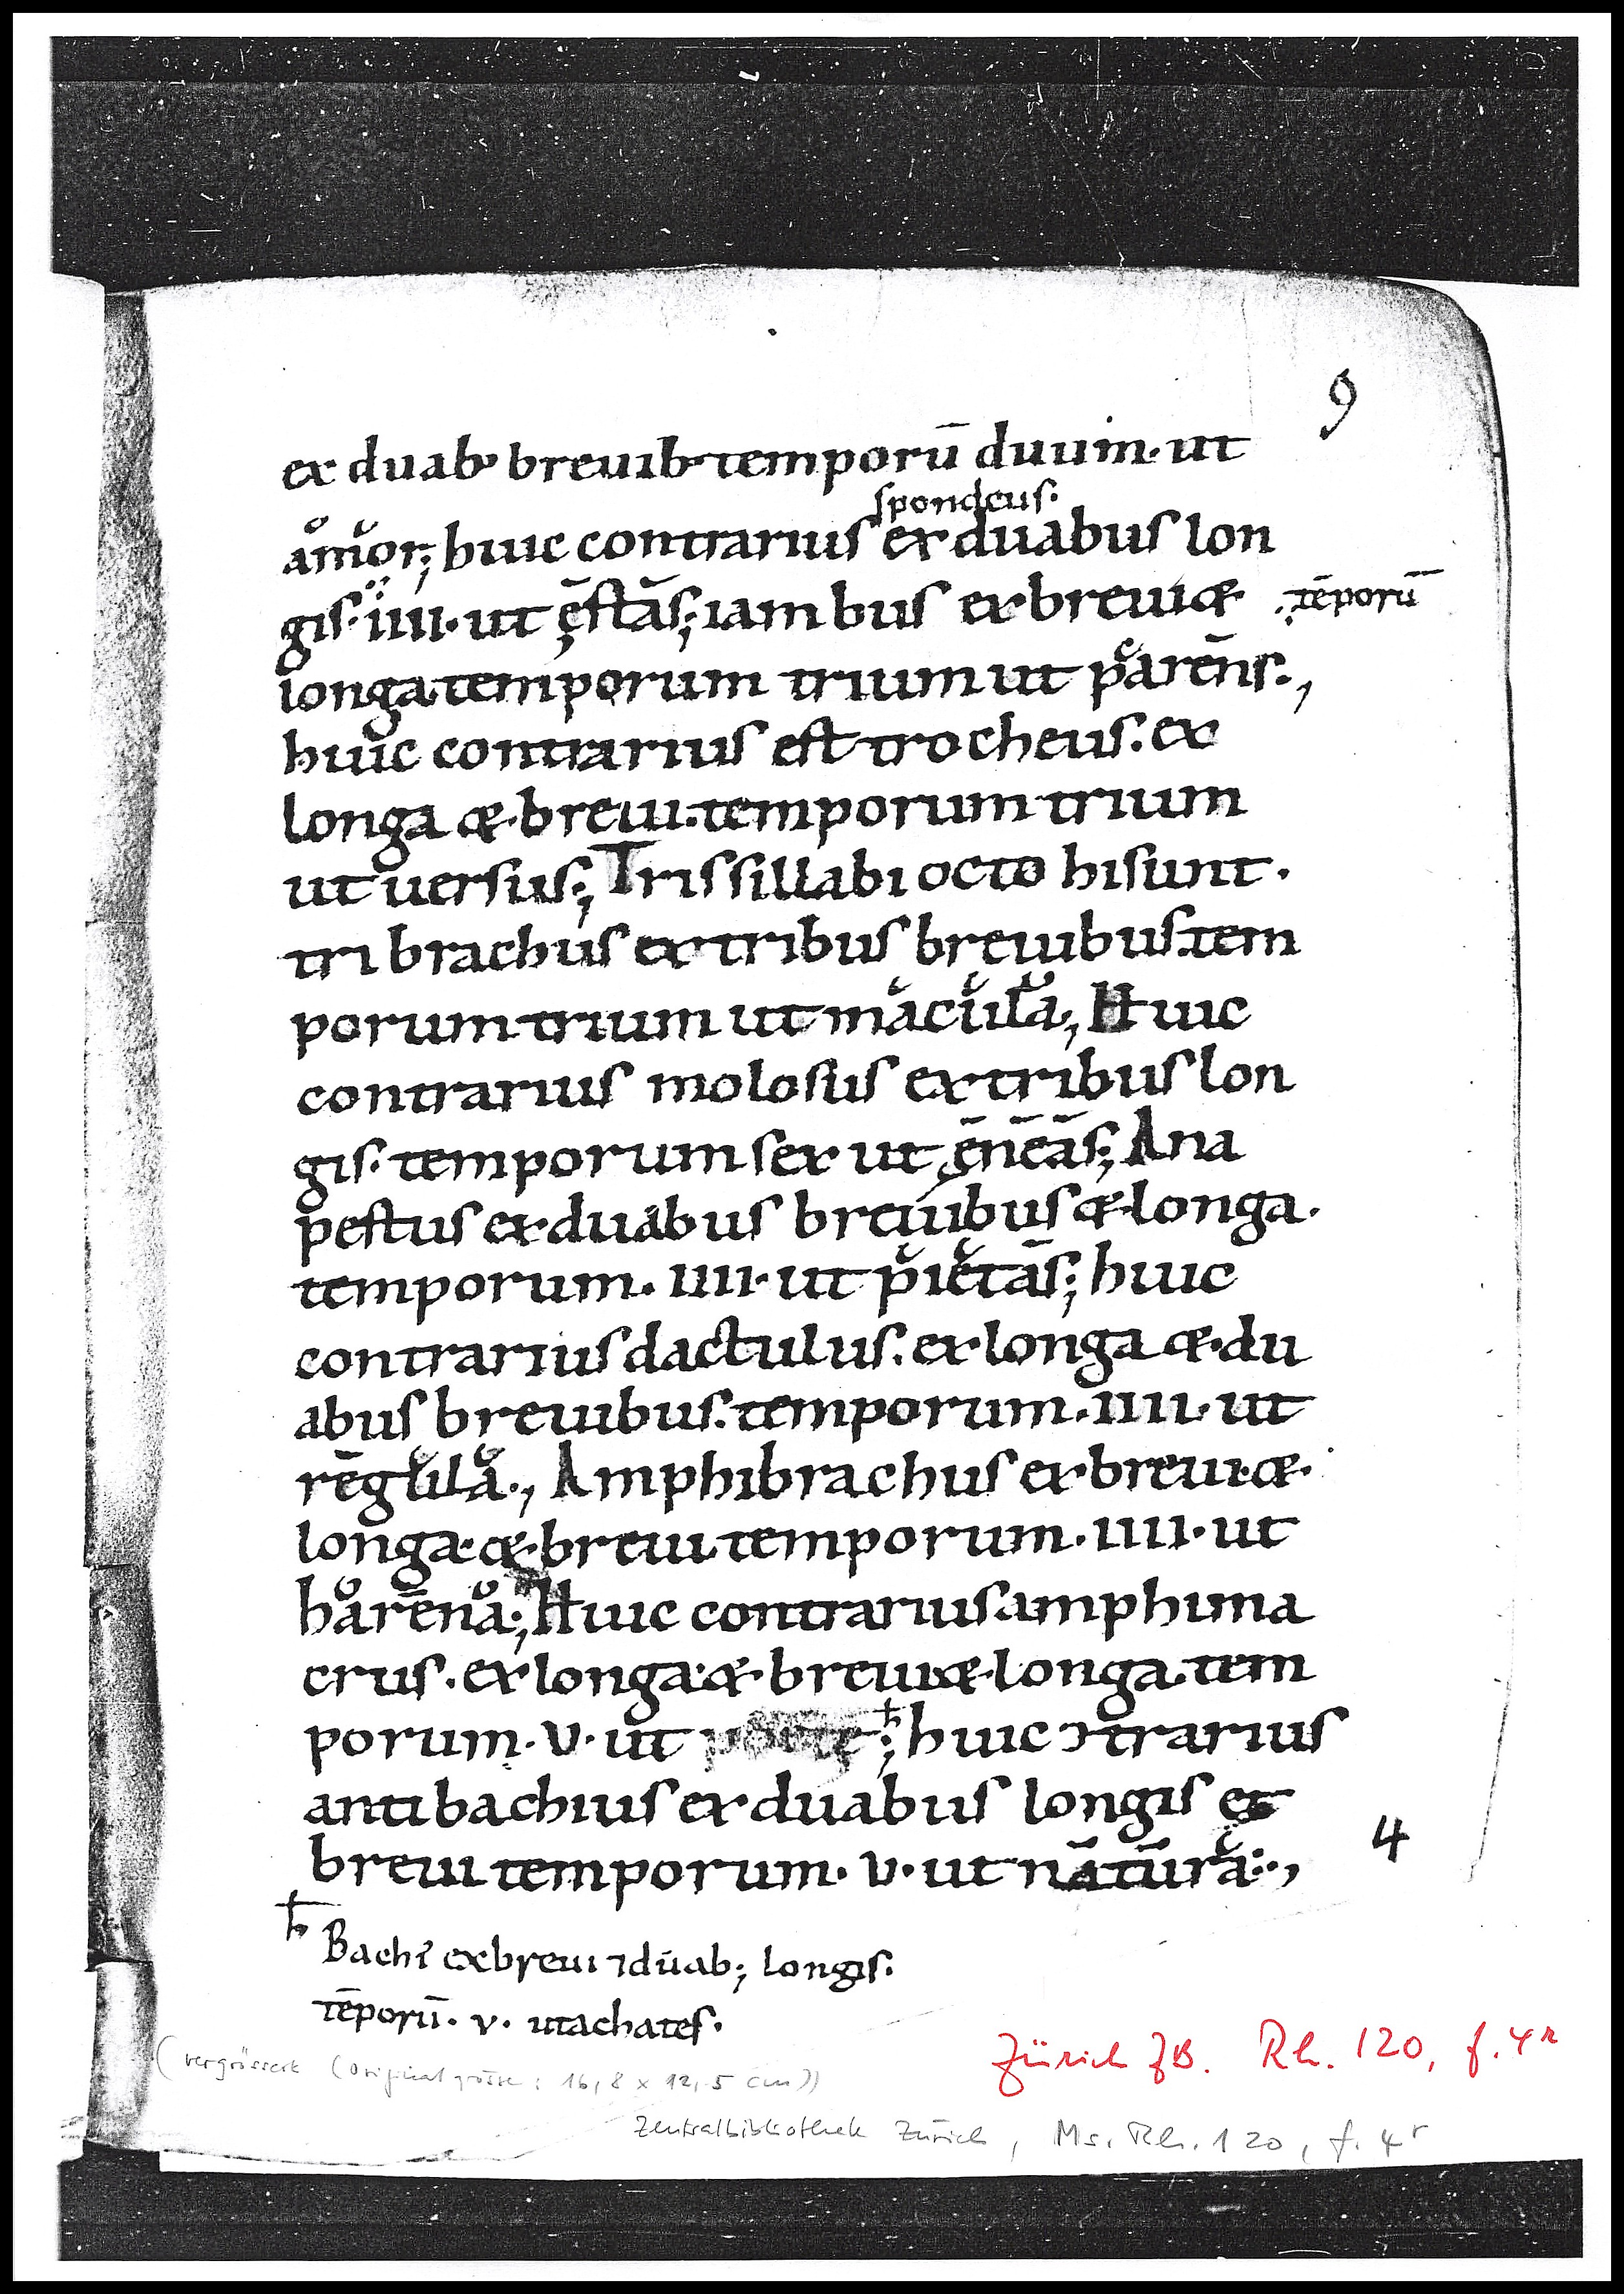 9
ex duab; breuib; temporū duum. ut
spondeus.
ămŏr; huic contrarius ex duabus lon
gis. iiii. ut ęstās; iambus ex breui &
tēporū
longa temporum trium ut părēns.,
huic contrarius est trocheus. ex
longa & breui. temporum trium
ut uersus; Trissillabi octo hi sunt.
tribrachus ex tribus breuibus. tem
porum trium ut măcŭlă; Huic
contrarius molosus ex tribus lon
gis. temporum sex ut ęnēās; Ana
pestus ex duabus breuibus & longa.
temporum. iiii. ut pĭĕtās; huic
contrarius dactulus. ex longa & du
abus breuibus. temporum. iiii. ut
rēgŭlă., Amphibrachus ex breui. &.
longa. & breui. temporum. iiii. ut
hărēnă; Huic contrarius amphima
crus. ex longa. & breui & longa. tem
porum. v. ut ; huic ɔtrarius
antibachius ex duabus longis et
breui temporum. v. ut nātūră.,
4
ħ Bachi᾽ ex breui ⁊ duab; longis.
tēporū. v. ut achates.
(vergrössert (Originalgrösse: 16,8 x 12,5 cm))
Zürich ZB. Rh. 120, f. 4r
Zentralbibliothek Zürich, Ms. Rh. 120, f. 4r